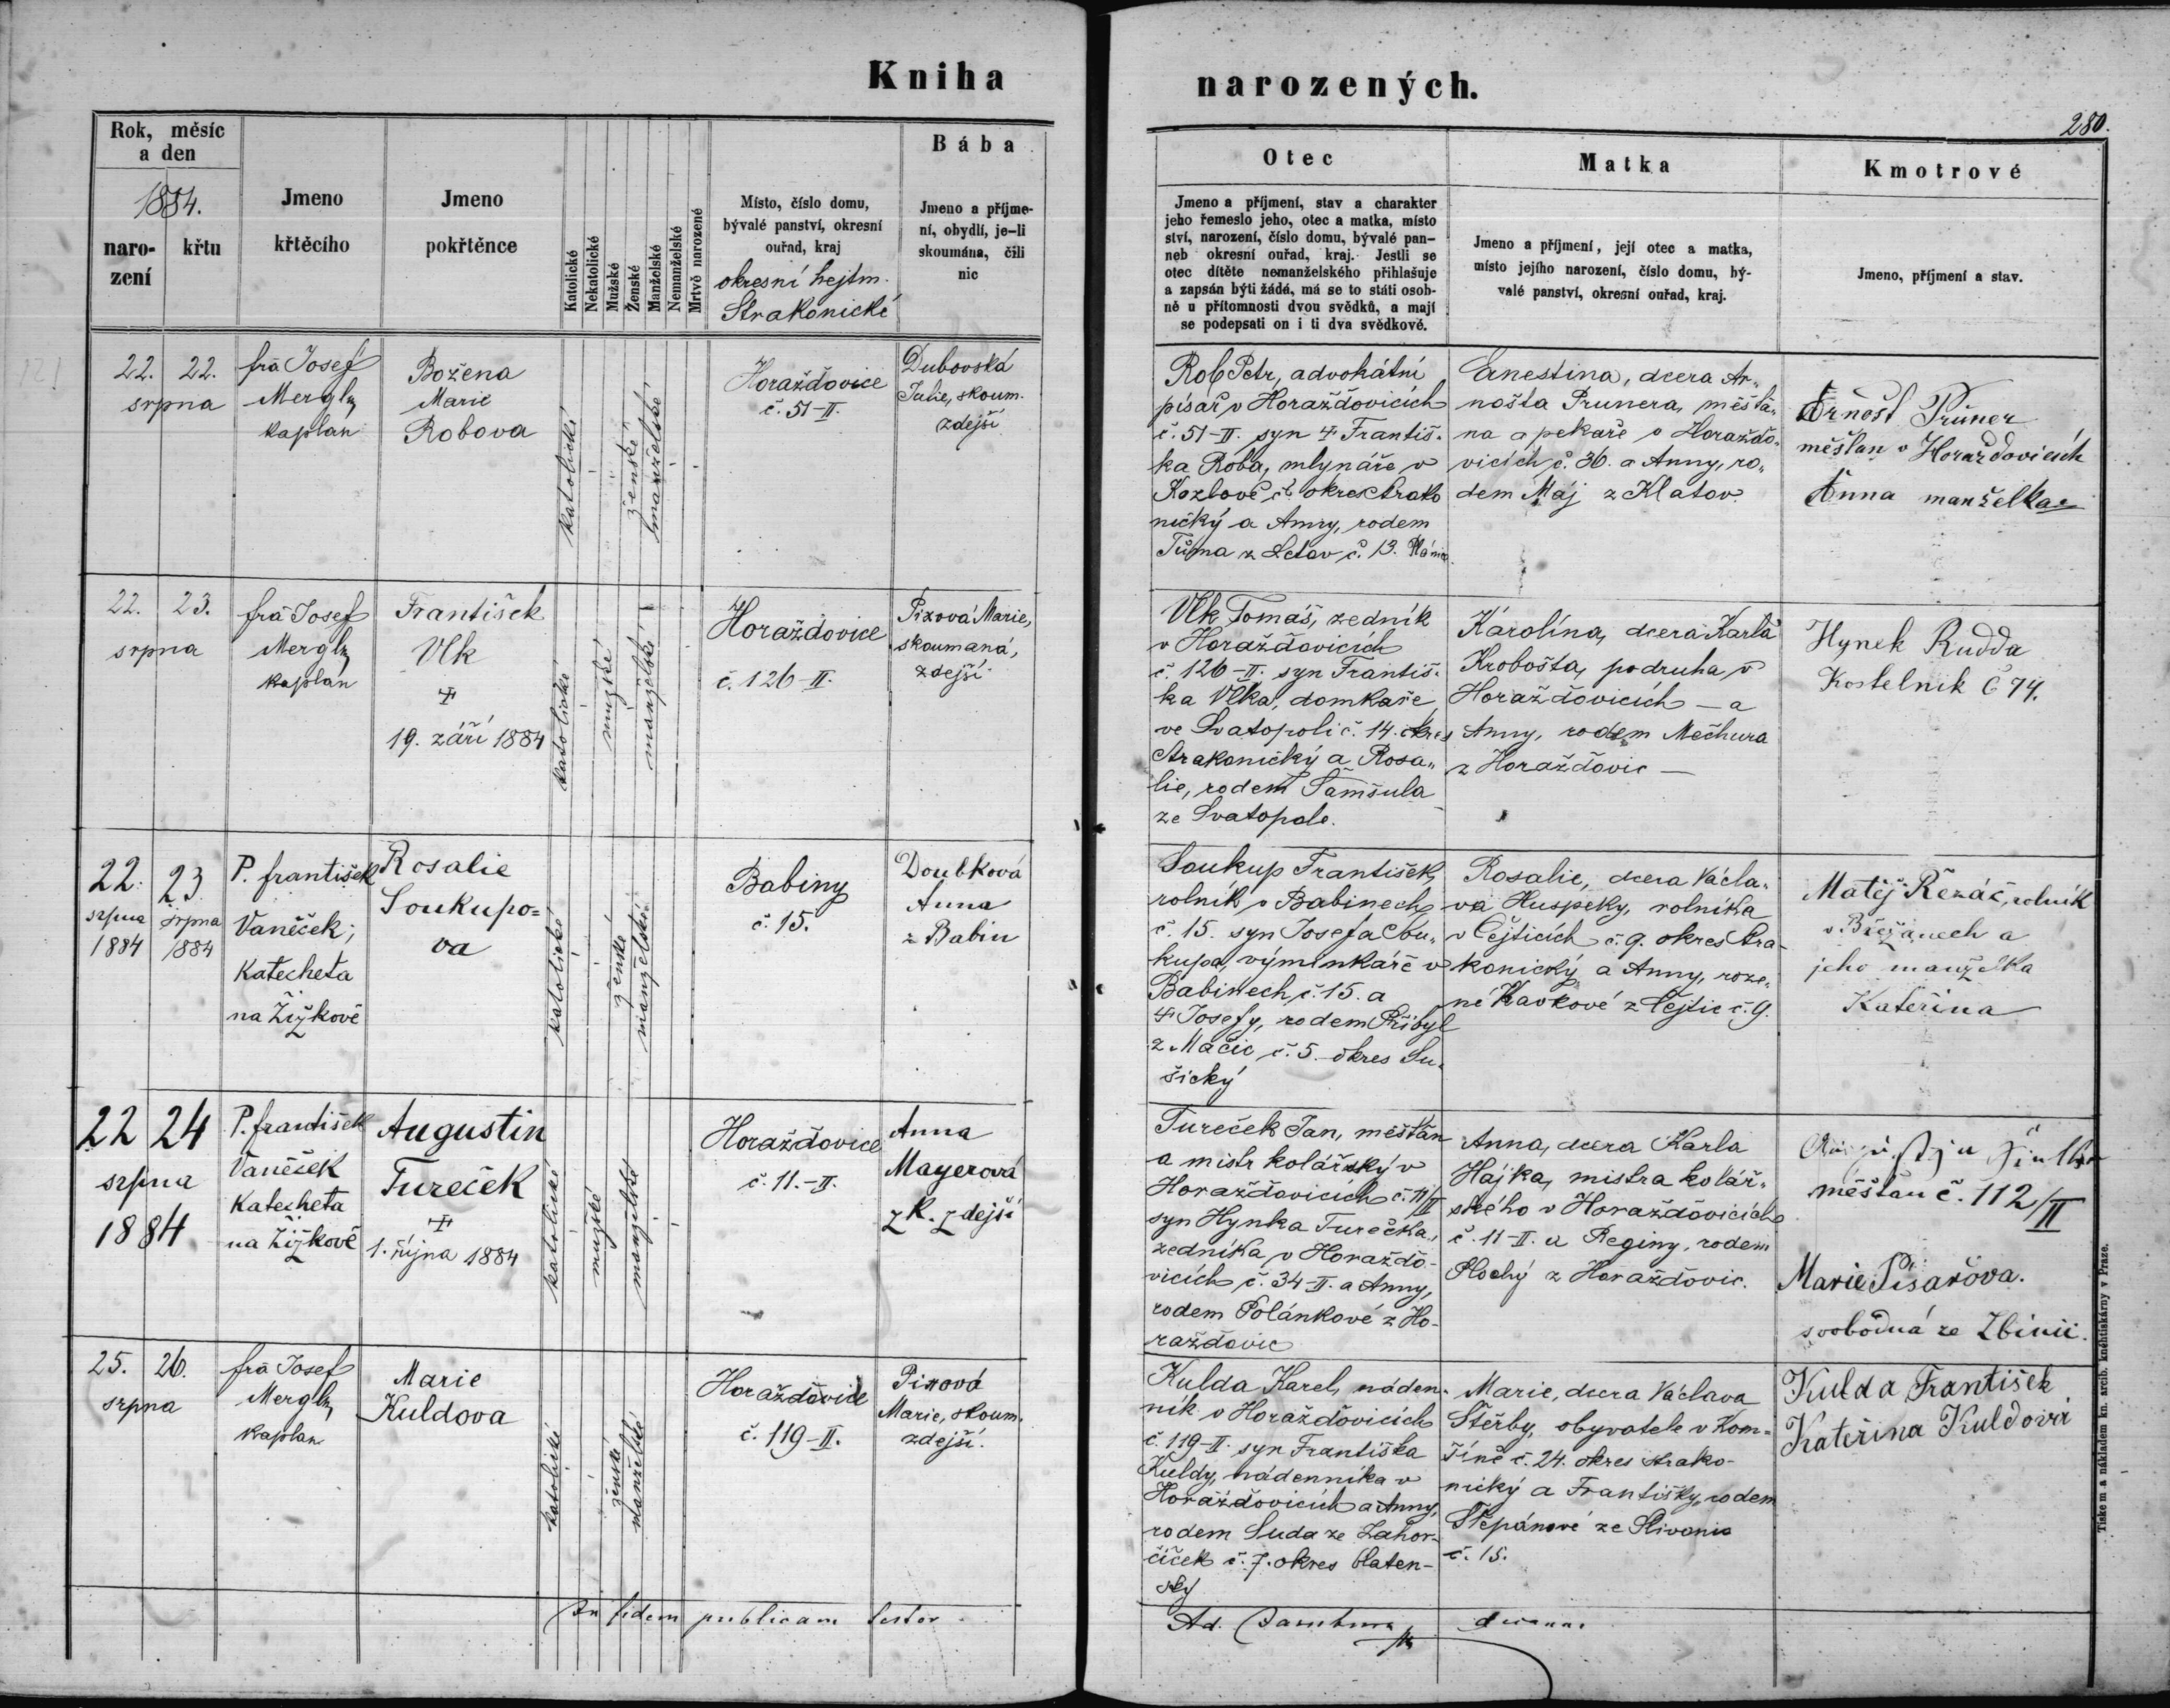 Kniha narozených.
280.
Rok, měsíc
a den
1884.
naro-
zení
křtu
Jmeno
křtěcího
Jmeno
pokřtěnce
Katolické
Nekatolické
Mužské
Ženské
Manželské
Nemanželské
Mrtvě narozené
Místo, číslo domu,
bývalé panství, okresní
ouřad, kraj
okresní hejtm.
Strakonické
Bába
Jmeno a příjme-
ní, obydlí, je-li
skoumána, čili
nic
Otec
Jmeno a příjmení, stav a charakter
jeho řemeslo jeho, otec a matka, místo
ství, narození, číslo domu, bývalé pan-
neb okresní ouřad, kraj. Jestli se
otec dítěte nemanželského přihlašuje
a zapsán býti žádá, má se to státi osob-
ně u přítomnosti dvou svědků, a mají
se podepsati on i ti dva svědkové.
Matka
Jmeno a příjmení, její otec a matka,
místo jejího narození, číslo domu, bý-
valé panství, okresní ouřad, kraj.
Kmotrové
Jmeno, příjmení a stav.
22. 22.
srpna
frá Josef
Mergl,
kaplan
Božena
Marie
Robova
katolické
ženské
manželské
Horažďovice
č. 51-II.
Dubovská
Julie, skoum.
zdejší
Rob Petr, advokátní
písař v Horažďovicích
č. 51-II. syn ☩ Františ-
ka Roba, mlynáře v
Kozlově č. okres Strako
nický a Anny, rodem
Tůma z Letov č. 13.
Ernestina, dcera Ar-
nošta Prunera, měšťa-
na a pekaře v Horažďo-
vicích č. 36. a Anny, ro-
dem Máj z Klatov.
Arnošt Prüner
měšťan v Horažďovicích
Anna manželka
22. 23.
srpna
frá Josef
Mergl,
kaplán
František
Vlk
☩
19. září 1884
katolické
mužské
manželské
Horažďovice
č. 126-II.
Pixová Marie,
skoumaná,
zdejší
Vlk Tomáš, zedník
v Horažďovicích
č. 126-II. syn Františ-
ka Vlka, domkaře
ve Svatopoli č. 14. okres
Strakonický a Rosa-
lie, rodem Šamšula
ze Svatopole.
Karolína, dcera Karla
Krobošta, podruha v
Horažďovicích — a
Anny, rodem Mečhura
z Horažďovic —
Hynek Rudda
Kostelnik č 74.
22. 23
srpna srpna
1884 1884
P. františek
Vaněček,
Katecheta
na Žižkově
Rosalie
Soukupo=
va
katolické
ženské
manželské
Babiny
č. 15.
Doubková
Anna
z Babin
Soukup František,
rolník v Babinech
č. 15. syn Josefa Sou-
kupa, výminkáře v
Babinech č. 15. a
☩ Josefy, rodem Přibyl
z Mačic č. 5. okres Su-
šický
Rosalie, dcera Václa-
va Huspeky, rolníka
v Čejticích č. 9. okres Stra-
konický a Anny, roze-
né Kavkové z Čejtic č. 9.
Matěj Řezáč, rolník
v Břežanech a
jeho manželka
Kateřina
22 24
srpna
1884
P. františek
Vaněček
Katecheta
na Žižkově
Augustin
Tureček
☩
1. října 1884
katolické
mužské
manželské
Horažďovice
č. 11.-II.
Anna
Mayerová
zk. zdejší
Tureček Jan, měšťan
a mistr kolářský v
Horažďovicích č. 11/II
syn Hynka Turečka,
zedníka v Horažďo-
vicích č. 34-II. a Anny,
rodem Polánkové z Ho-
raždovic
Anna, dcera Karla
Hájka, mistra kolář-
ského v Horažďovicích
č. 11-II. a Reginy, rodem
Plochý z Horažďovic.
měšťan č. 112/II
Marie Pisařova.
svobodná ze
25. 26.
srpna
frá Josef
Mergl,
kaplan
Marie
Kuldova
katolické
ženské
manželské
Horažďovice
č. 119-II.
Pixová
Marie, skoum.
zdejší.
Kulda Karel, náden-
ník v Horažďovicích
č. 119-II. syn Františka
Kuldy, nádenníka v
Horažďovicích a Anny,
rodem Suda ze Zahor-
číček č. 7. okres blaten-
ský
Marie, dcera Václava
Štěrby, obyvatele v Kom-
šíně č. 24. okres strako-
nický a Františky, rodem
Štěpánové ze Slivonic
č. 15.
Kulda František
Kateřina Kuldová
In fidem publicam testor
Ad.
Tiskem a nákladem kn. arcib. knéhtiskárny v Praze.